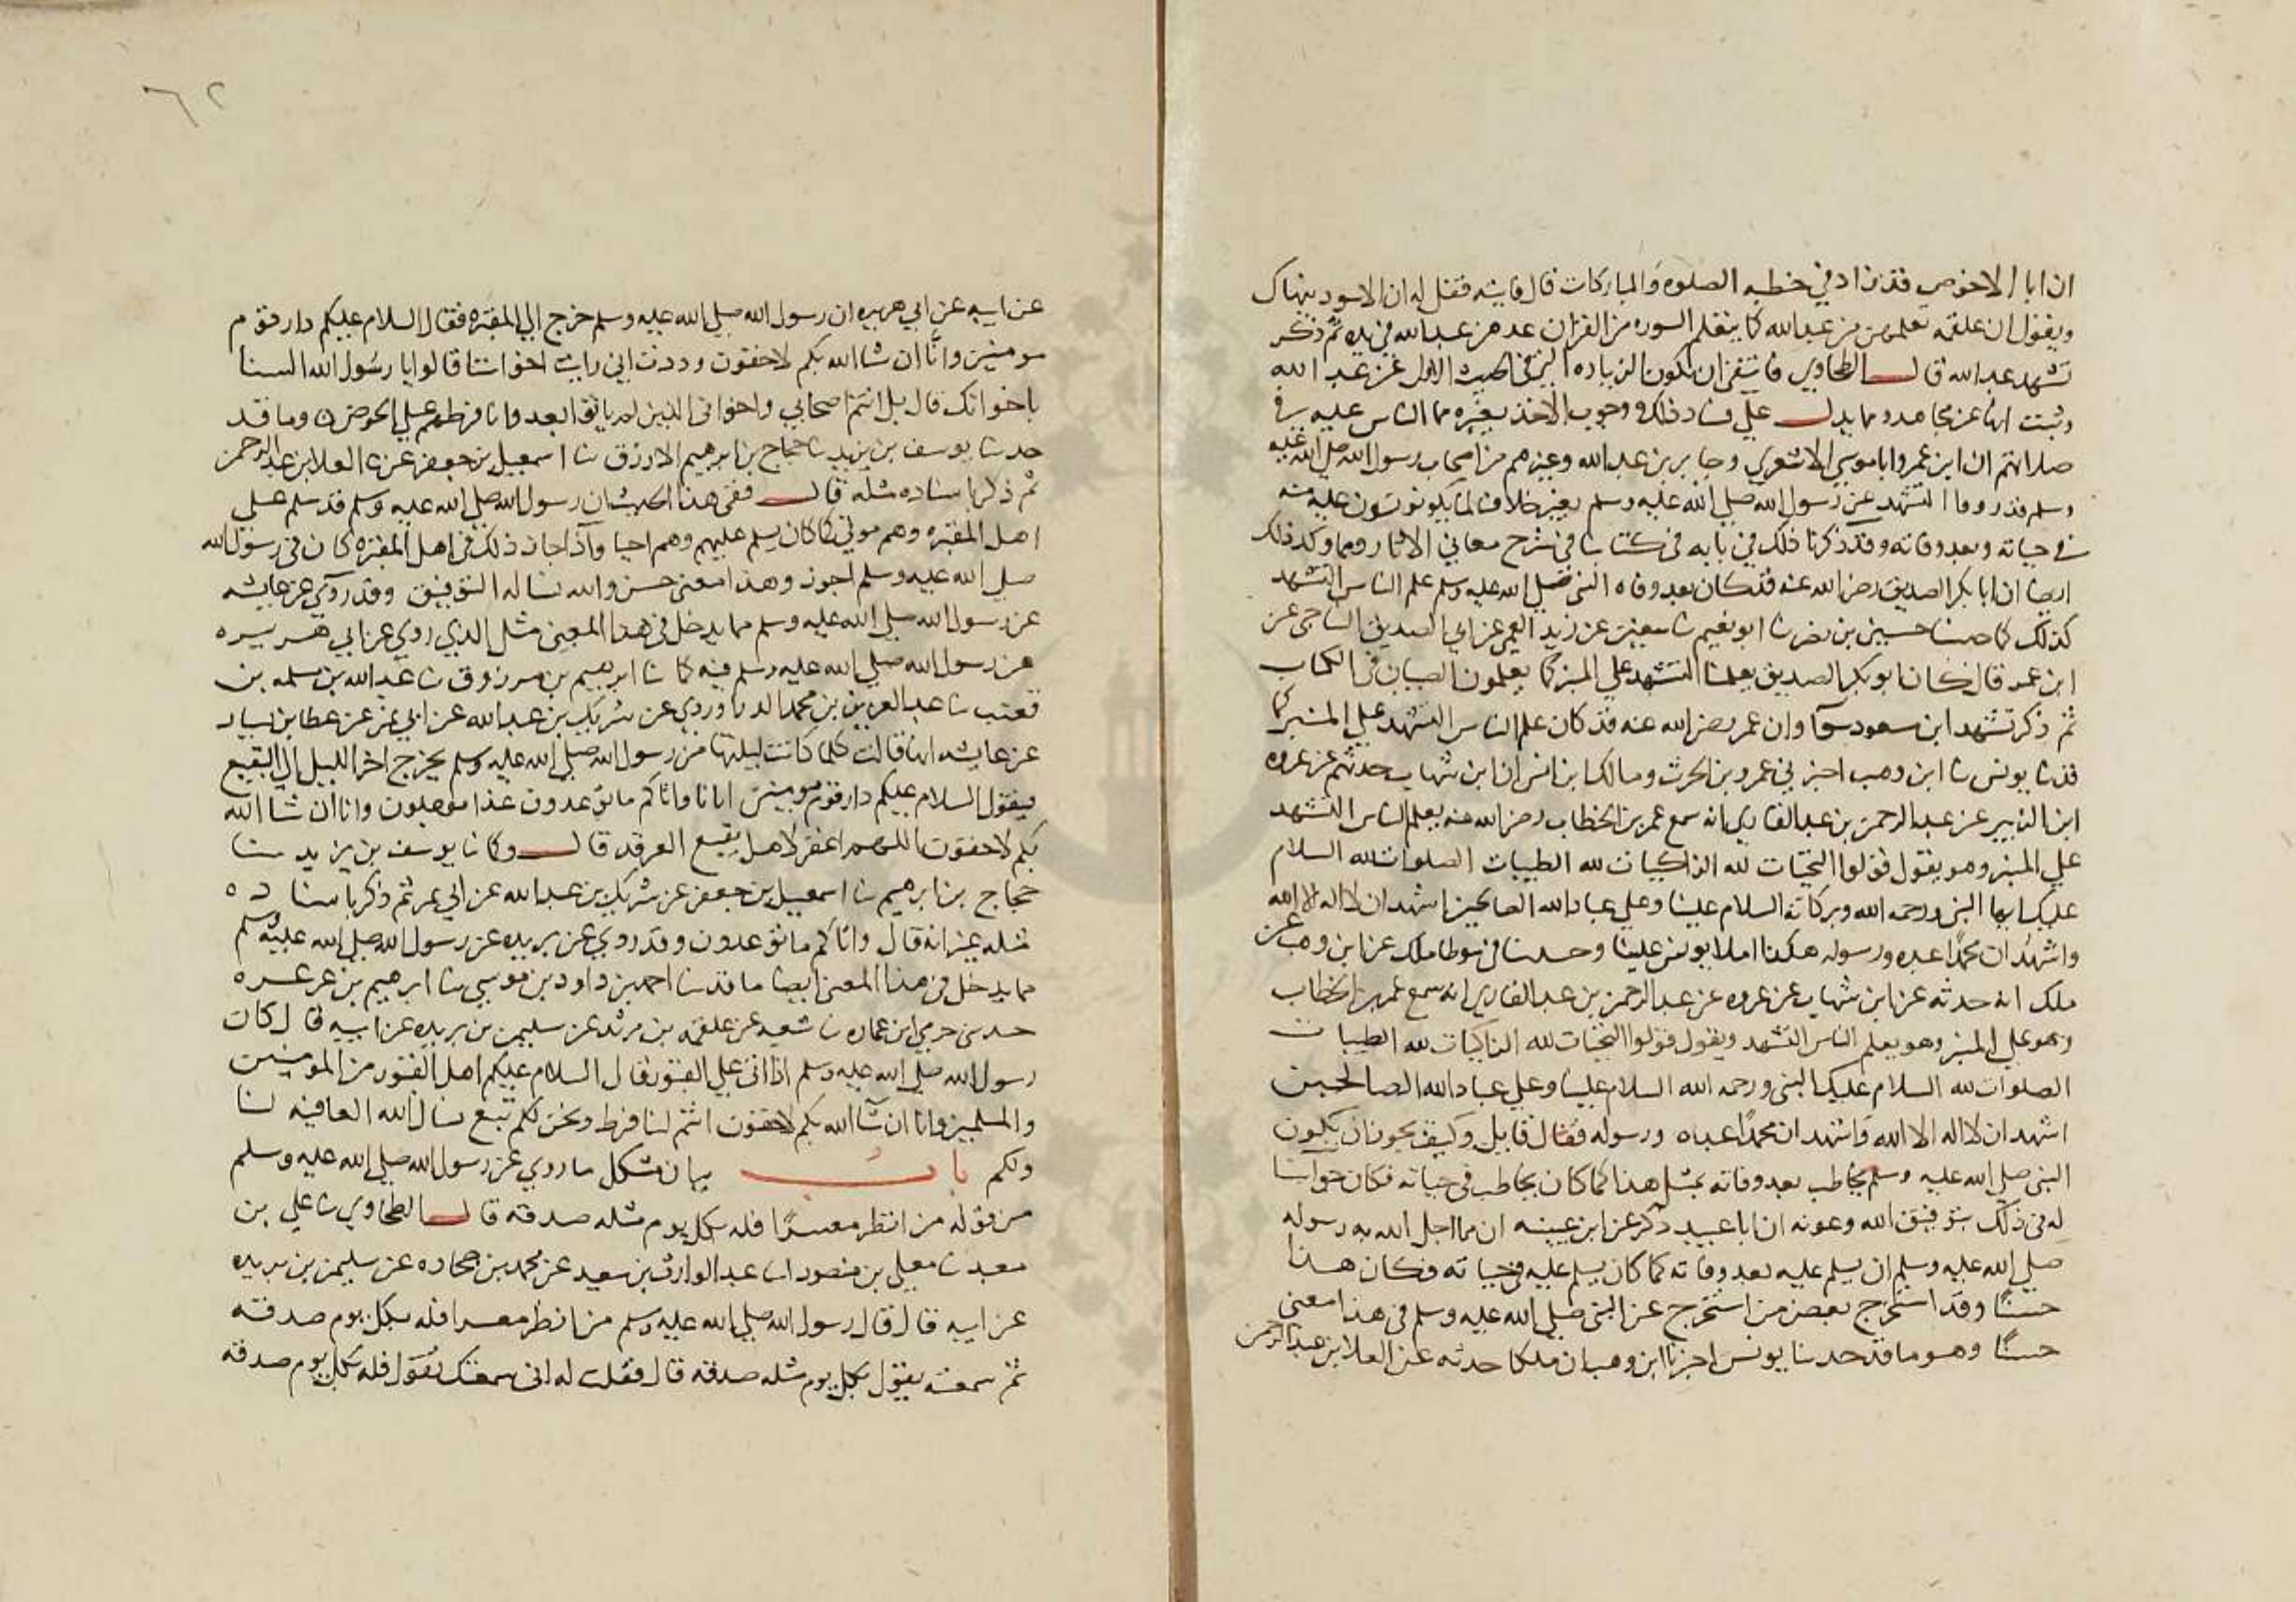 ان ابا الاحوص قد زاد في خطبه الصلوه والمباركات قال فاتيته فقل له ان الاسود ينهاك
ويقول ان علقمه تعلمهن من عبدالله كما يتعلم السوره من القران عدهن عبدالله في يده ثم ذكر
تشهد عبدالله قال الطحاوي فانتفى ان يكون الزياده التي في الحديث الاول عن عبد الله
وثبت انها عن مجاهد ومما يدل على فساد ذلك ووجوب الاخذ بغيره مما الناس عليه في
صلاتهم ان ابن عمر وابا موسي الاشعري وجابر بن عبدالله وغيرهم من اصحاب رسول الله صلي الله عليه
وسلم قد رووا التشهد عن رسول الله صلي الله عليه وسلم بغير خلاف لما يكونون عليه منه
في حياته وبعد وفاته وقد ذكرنا ذلك في بابه في كتابنا في شرح معاني الاثار ومما وكد ذلك
ايضا ان ابا بكر الصديق رضي الله عنه قد كان بعد وفاه النبي صلي الله عليه وسلم علم الناس التشهد
كذلك كما حدثنا حسين بن نصر نا ابو نعيم نا سفين عن زيد العمي عن ابي الصديق الناجي عن
ابن عمر قال كان ابو بكر الصديق يعلمنا التشهد علي المنبر كما يعلمون الصبيان في الكتاب
ثم ذكر تشهد ابن مسعود سوآ وان عمر رضي الله عنه قد كان علم الناس التشهد علي المنبر كما
قد نا يونس نا ابن وهب اخبرني عمرو بن الحرث ومالك ابن انس ان ابن شهاب حدثهم عن عروه
ابن الزبير عن عبد الرحمن بن عبد القاري انه سمع عمر بن الخطاب رضي الله عنه يعلم الناس التشهد
علي المنبر وهو يقول قولوا التحيات لله الزاكيات لله الطيبات الصلوات لله السلام
عليك ايها النبي ورحمه الله وبركاته السلام علينا وعلي عباد الله الصالحين اشهد ان لا اله الا الله
واشهد ان محمدا عبده ورسوله هكذا املا يونس علينا وحدثنا في موطا ملك عن ابن وهب عن
ملك انه حدثه عن ابن شهاب عن عروه عن عبد الرحمن بن عبد القاري انه سمع عمر بن الخطاب
وهو علي المنبر وهو يعلم الناس التشهد ويقول قولوا التحيات لله الزاكيات لله الطيبات
الصلوات لله السلام عليك ايها النبي ورحمه الله السلام علينا وعلي عباد الله الصالحين
اشهد ان لا اله الا الله واشهد ان محمدا عبده ورسوله فقال قايل وكيف يجوز ان يكون
النبي صلي الله عليه وسلم يخاطب بعد وفاته بمثل هذا كما كان يخاطب في حياته فكان جوابنا
له في ذلك بتوفيق الله وعونه ان ابا عبيد ذكر عن ابن عيينه ان مما اجل الله به رسوله
صلي الله عليه وسلم ان يسلم عليه بعد وفاته كما كان يسلم عليه في حياته فكان هذا
حسنا وقد استخرج بعض من استخرج عن النبي صلي الله عليه وسلم في هذا معني
حسنا وهو ما قد حدثنا يونس اخبرنا ابن وهب ان ملكا حدثه عن العلا بن عبد الرحمن
٦٢
عن ابيه عن ابي هريره ان رسول الله صلي الله عليه وسلم خرج الي المقبره فقال السلام عليكم دار قوم
مومنين وانا ان شا الله بكم لاحقون وددت اني رايت اخواننا قالوا يا رسول الله السنا
باخوانك قال بل انتم اصحابي واخواني الذين لم ياتوا بعد وانا فرطهم علي الحوض وما قد
حدثنا يوسف بن يزيد نا حجاج بن ابرهيم الازرق نا اسمعيل بن جعفر عن العلا بن عبد الرحمن
ثم ذكر باسناده مثله قال ففي هذا الحديث ان رسول الله صلي الله عليه وسلم قد سلم علي
اهل المقبره وهم موتي كما كان يسلم عليهم وهم احيا واذا جاز ذلك في اهل المقبره كان في رسول الله
صلي الله عليه وسلم اجوز وهذا معني حسن والله نساله التوفيق وقد روي عن عايشه
عن رسول الله صلي الله عليه وسلم مما يدخل في هذا المعني مثل الذي روي عن ابي هريره
عن رسول الله صلي الله عليه وسلم فيه كما نا ابرهيم بن مرزوق نا عبد الله بن مسلمه بن
قعنب نا عبد العزيز بن محمد الدراوردي عن شريك بن عبد الله عن ابي نمر عن عطا بن يسار
عن عايشه انها قالت كلما كانت ليلتها من رسول الله صلي الله عليه وسلم يخرج اخر الليل الي البقيع
فيقول السلام عليكم دار قوم مومنين اتانا واتاكم ما توعدون غدا موجلون وانا ان شا الله
بكم لاحقون اللهم اغفر لاهل بقيع الغرقد قال وكما نا يوسف بن يزيد نا
حجاج بن ابرهيم نا اسمعيل بن جعفر عن شريك بن عبد الله عن ابي نمر ثم ذكر باسناده
مثله غير انه قال واتاكم ما توعدون وقد روي عن بريده عن رسول الله صلي الله عليه وسلم
مما يدخل في هذا المعني ايضا ما قد نا احمد بن داود بن موسي نا ابرهيم بن عرعره
حدثني حرمي ابن عماره نا شعبه عن علقمه بن مرثد عن سليمن بن بريده عن ابيه قال كان
رسول الله صلي الله عليه وسلم اذا اتي علي القبور قال السلام عليكم اهل القبور من المومنين
والمسلمين وانا ان شآ الله بكم لاحقون انتم لنا فرط ونحن لكم تبع نسال الله العافيه لنا
ولكم باب بيان مشكل ما روي عن رسول الله صلي الله عليه وسلم
من قوله من انظر معسرا فله بكل يوم مثله صدقه قال الطحاوي نا علي بن
معبد نا معلي بن منصور انا عبد الوارث بن سعيد عن محمد بن جحاده عن سليمن بن بريده
عن ابيه قال قال رسول الله صلي الله عليه وسلم من انظر معسرا فله بكل يوم صدقه
ثم سمعته يقول بكل يوم مثله صدقه قال فقلت له اني سمعتك تقول فله بكل يوم صدقه